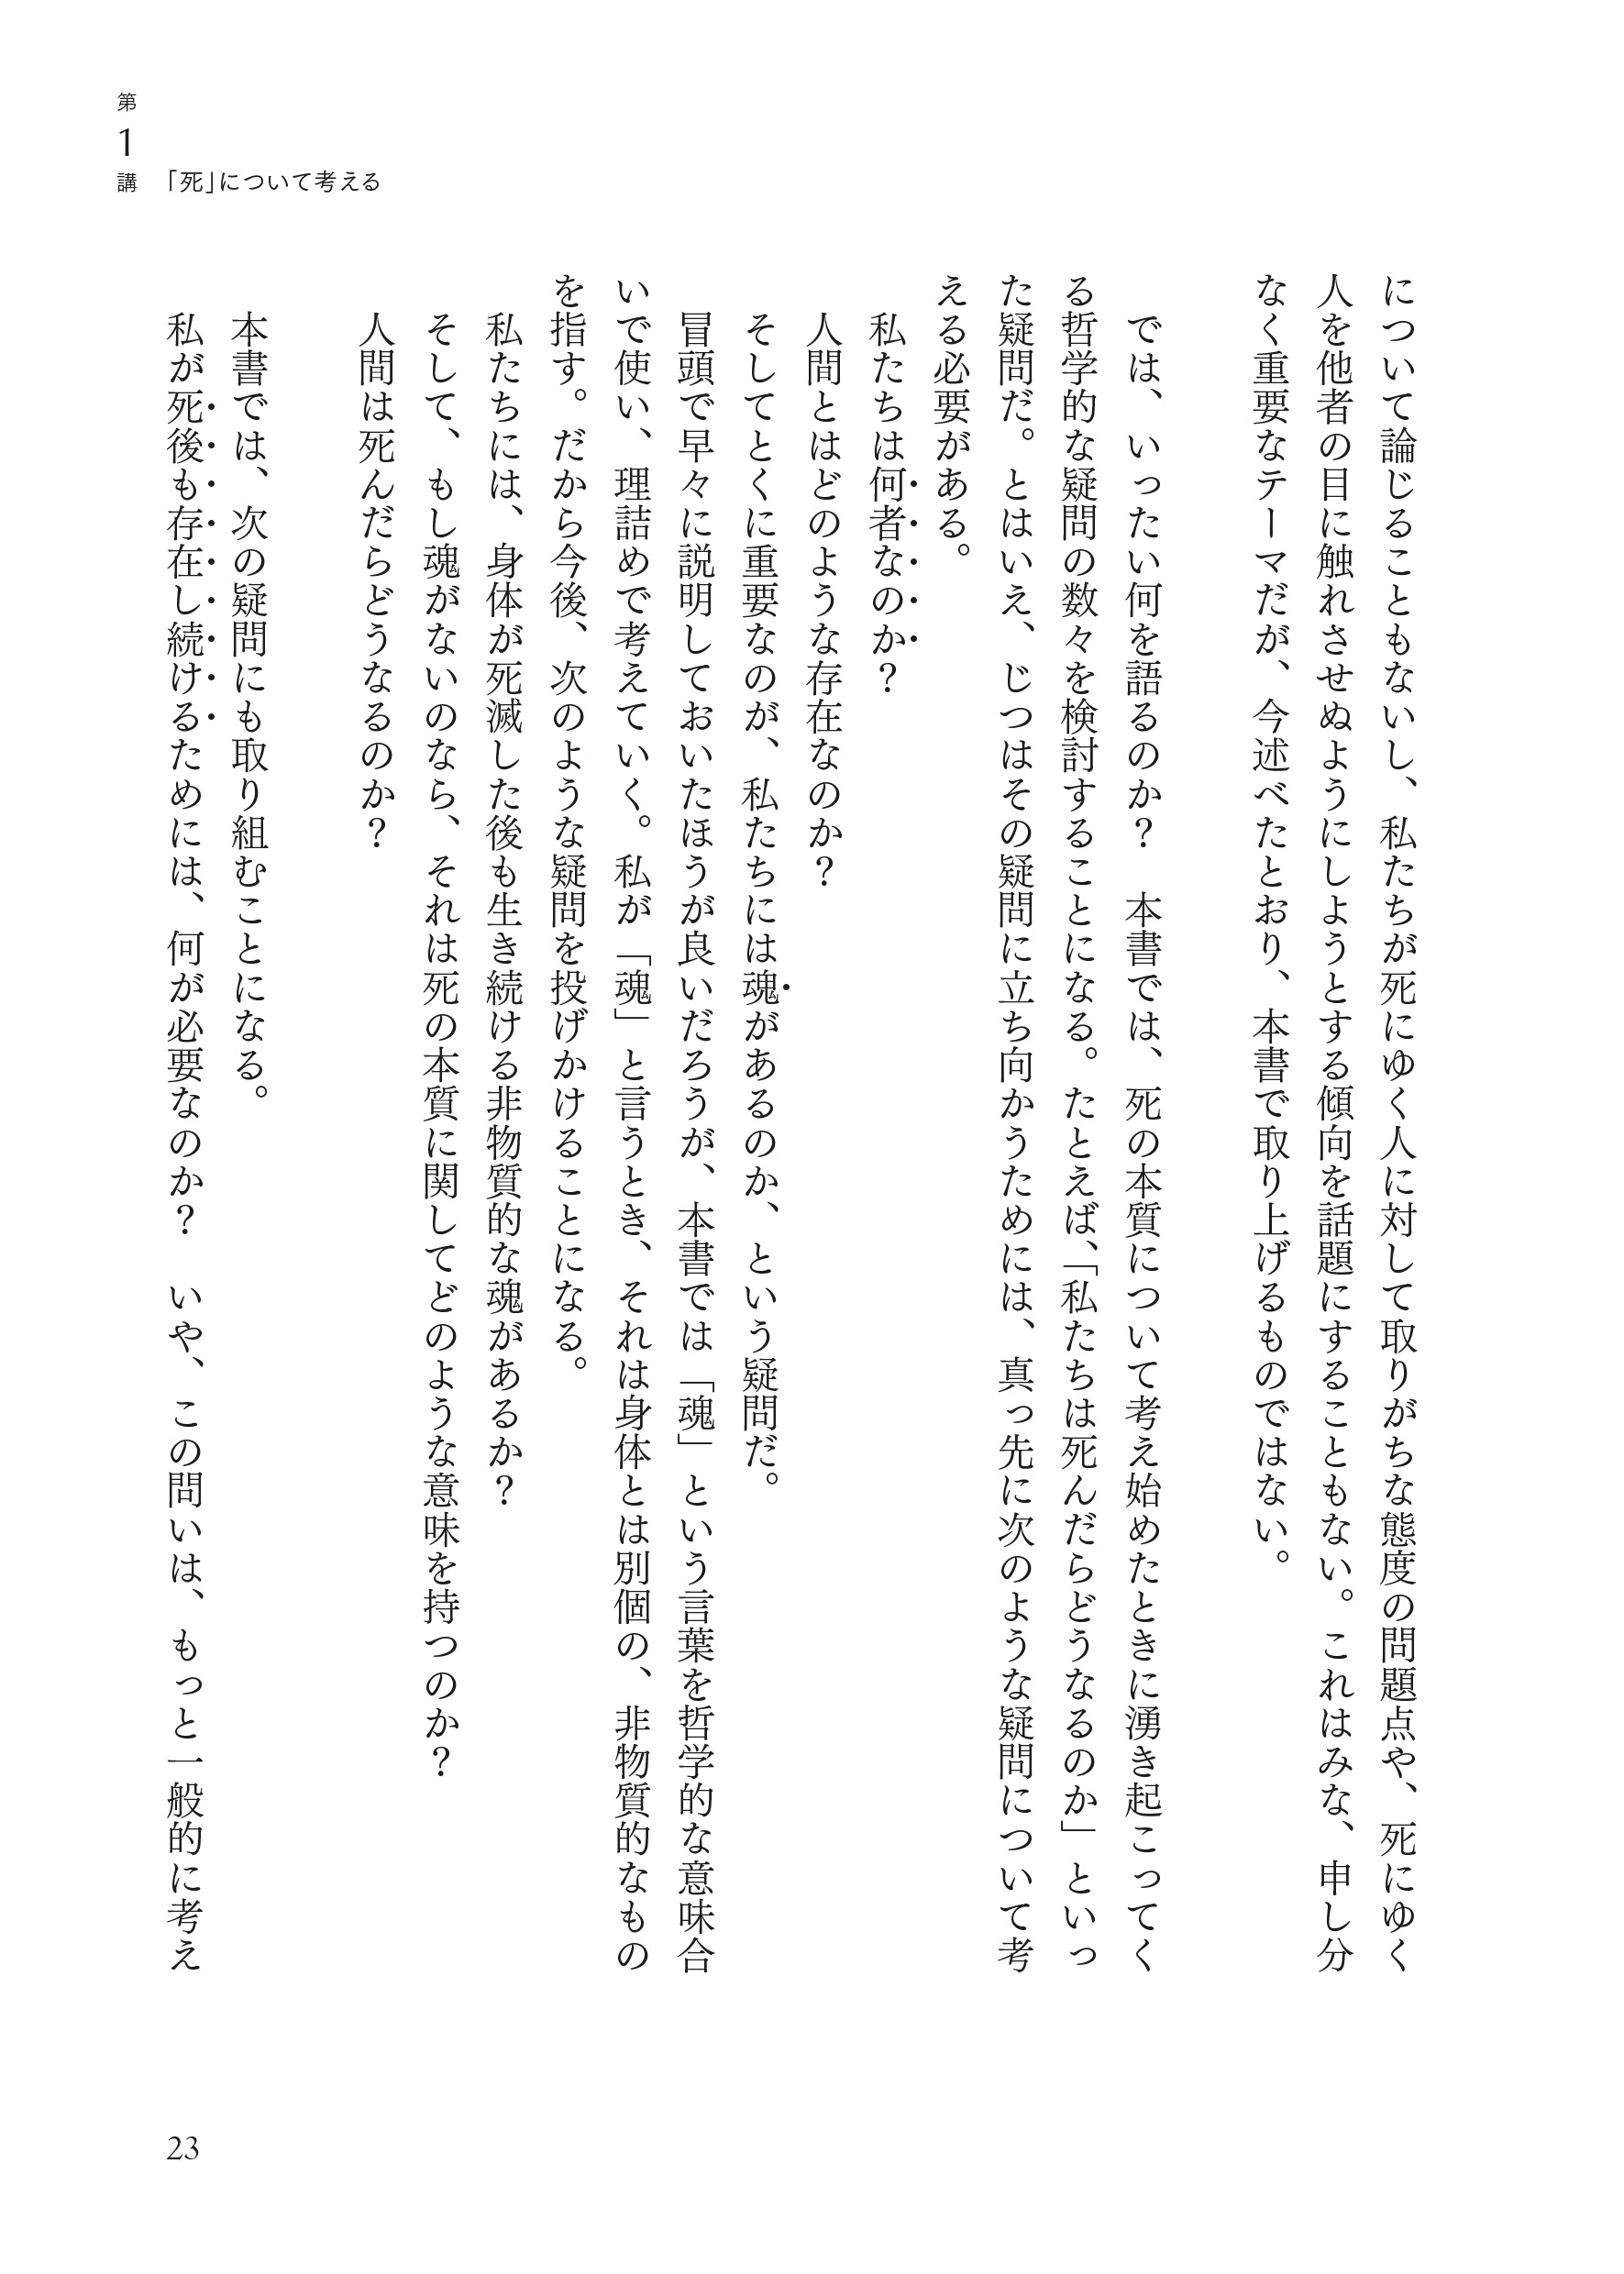 第1講 「死」について考える
について論じることもないし、私たちが死にゆく人に対して取りがちな態度の問題点や、死にゆく
人を他者の目に触れさせぬようにしようとする傾向を話題にすることもない。これはみな、申し分
なく重要なテーマだが、今述べたとおり、本書で取り上げるものではない。
では、いったい何を語るのか？　本書では、死の本質について考え始めたときに湧き起こってく
る哲学的な疑問の数々を検討することになる。たとえば、「私たちは死んだらどうなるのか」といっ
た疑問だ。とはいえ、じつはその疑問に立ち向かうためには、真っ先に次のような疑問について考
える必要がある。
私たちは何者なのか？
人間とはどのような存在なのか？
そしてとくに重要なのが、私たちには魂があるのか、という疑問だ。
冒頭で早々に説明しておいたほうが良いだろうが、本書では「魂」という言葉を哲学的な意味合
いで使い、理詰めで考えていく。私が「魂」と言うとき、それは身体とは別個の、非物質的なもの
を指す。だから今後、次のような疑問を投げかけることになる。
私たちには、身体が死滅した後も生き続ける非物質的な魂があるか？
そして、もし魂がないのなら、それは死の本質に関してどのような意味を持つのか？
人間は死んだらどうなるのか？
本書では、次の疑問にも取り組むことになる。
私が死後も存在し続けるためには、何が必要なのか？　いや、この問いは、もっと一般的に考え
23